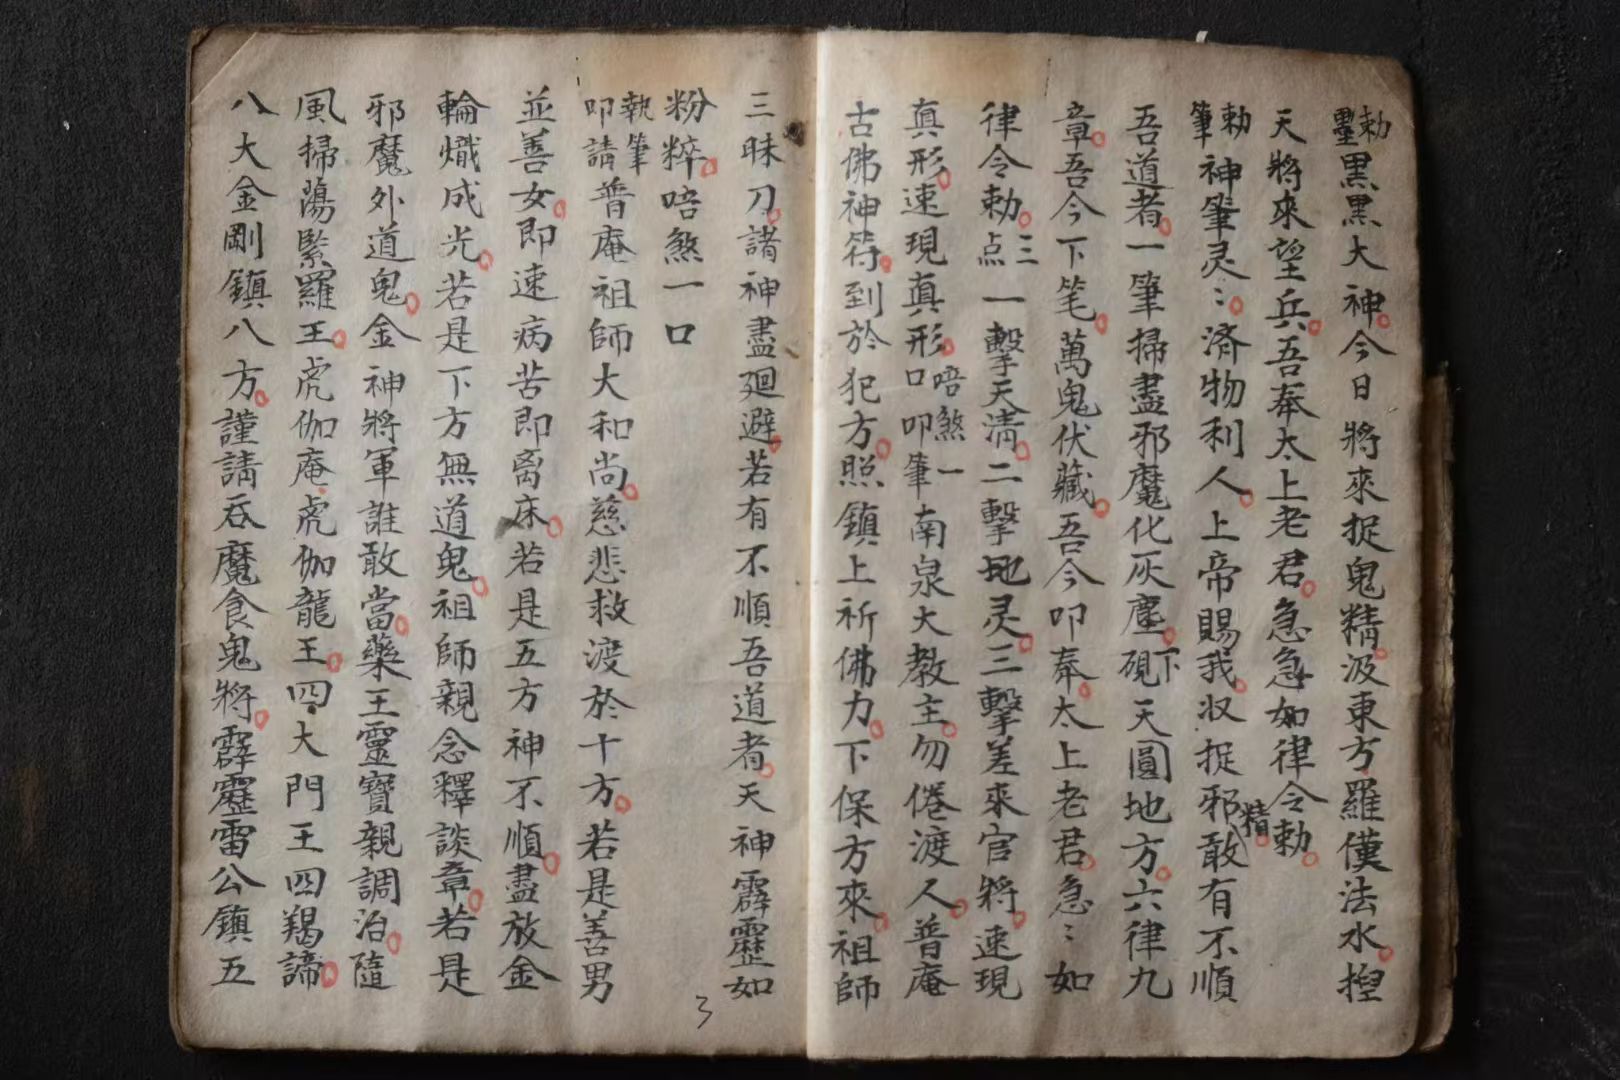 勅墨黑黑大神今日將來捉鬼精汲東方羅僕法水捏
天將來望兵吾奉太上老君急急如律令勅
勅筆神筆灵〻済物利人上帝賜我收捉邪精敢有不順
吾道者一筆掃盡邪魔化灰塵下硯天圓地方六律九
章吾今下笔萬鬼伏藏吾今叩奉太上老君急〻如
律令勅三点一擊天清二擊地灵三擊差來官將速現
真形速現真形唔煞一口叩筆南泉大教主勿倦渡人普庵
古佛神符到於犯方照鎮上祈佛力下保方來祖師
三昧刀諸神盡廻避若有不順吾道者天神霹靂如
粉粹唔煞一口
執筆叩請普庵祖師大和尚慈悲救渡於十方若是善男
並善女即速病苦即离床若是五方神不順盡放金
輪熾成光若是下方無道鬼祖師親念釋談章若是
邪魔外道鬼金神將軍誰敢當藥王靈寶親調治隨
風掃蕩緊羅王虎伽庵虎伽龍王四大門王四羯諦
八大金剛鎮八方謹請吞魔食鬼將霹靂雷公鎮五
3